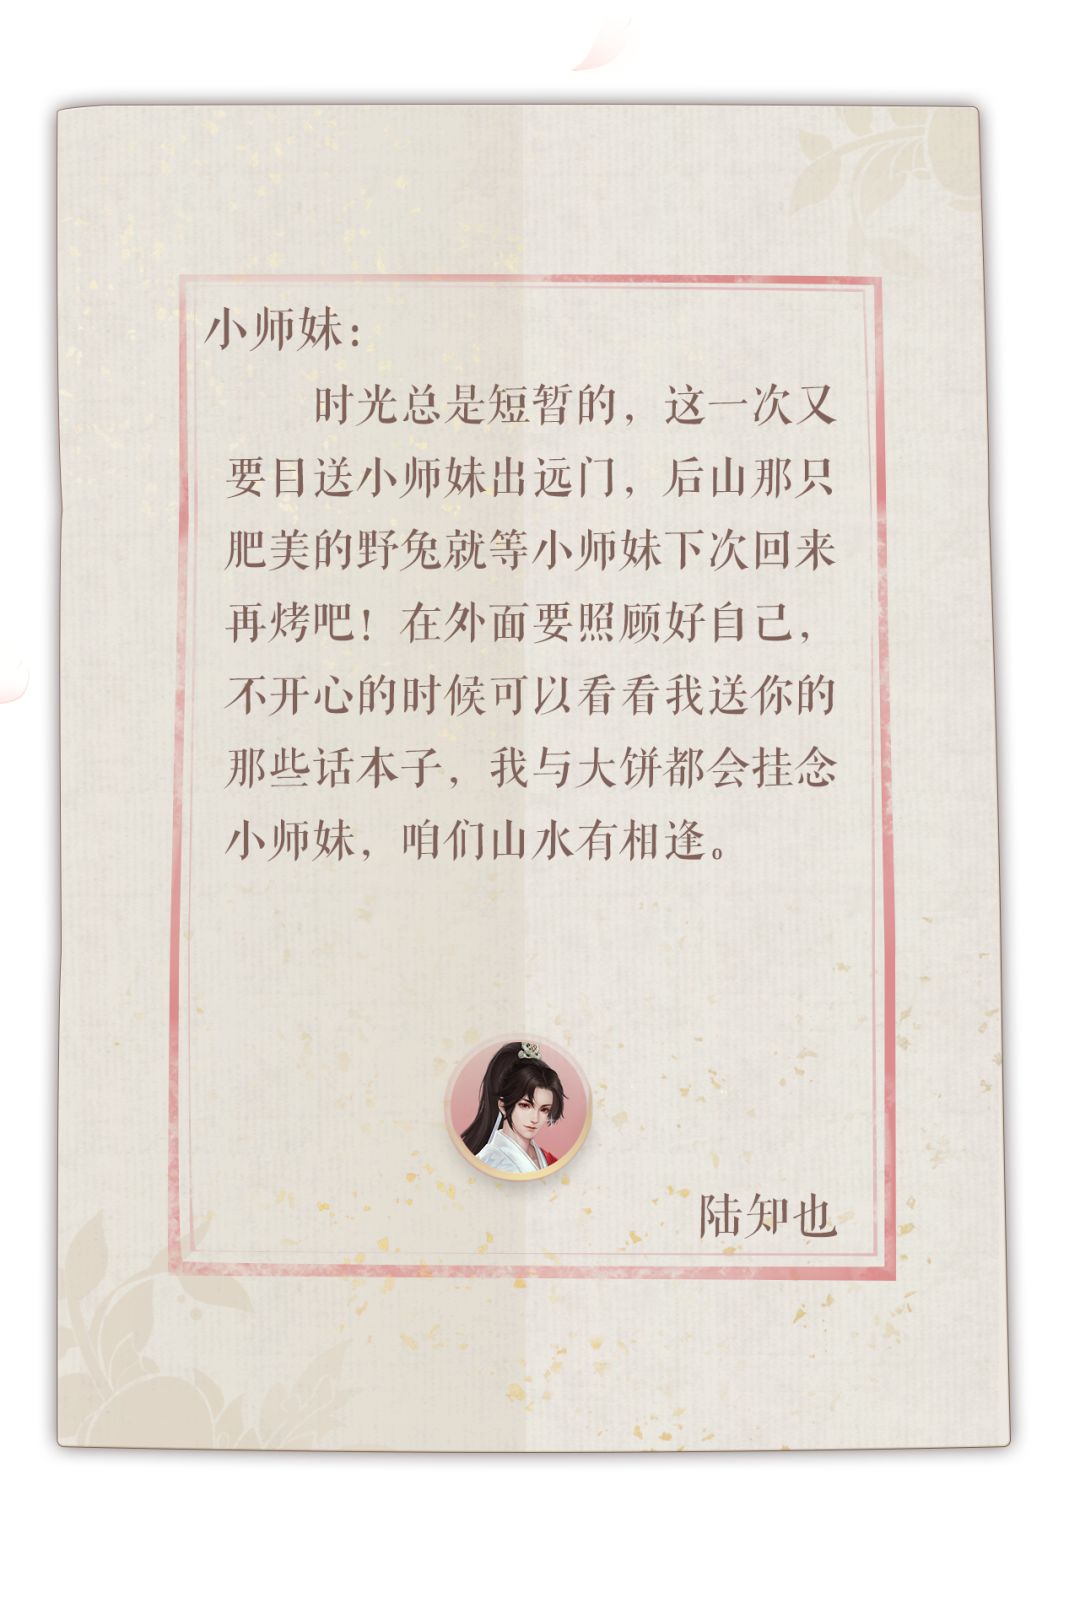 小师妹：
时光总是短暂的，这一次又
要目送小师妹出远门，后山那只
肥美的野兔就等小师妹下次回来
再烤吧！在外面要照顾好自己，
不开心的时候可以看看我送你的
那些话本子，我与大饼都会挂念
小师妹，咱们山水有相逢。
陆知也